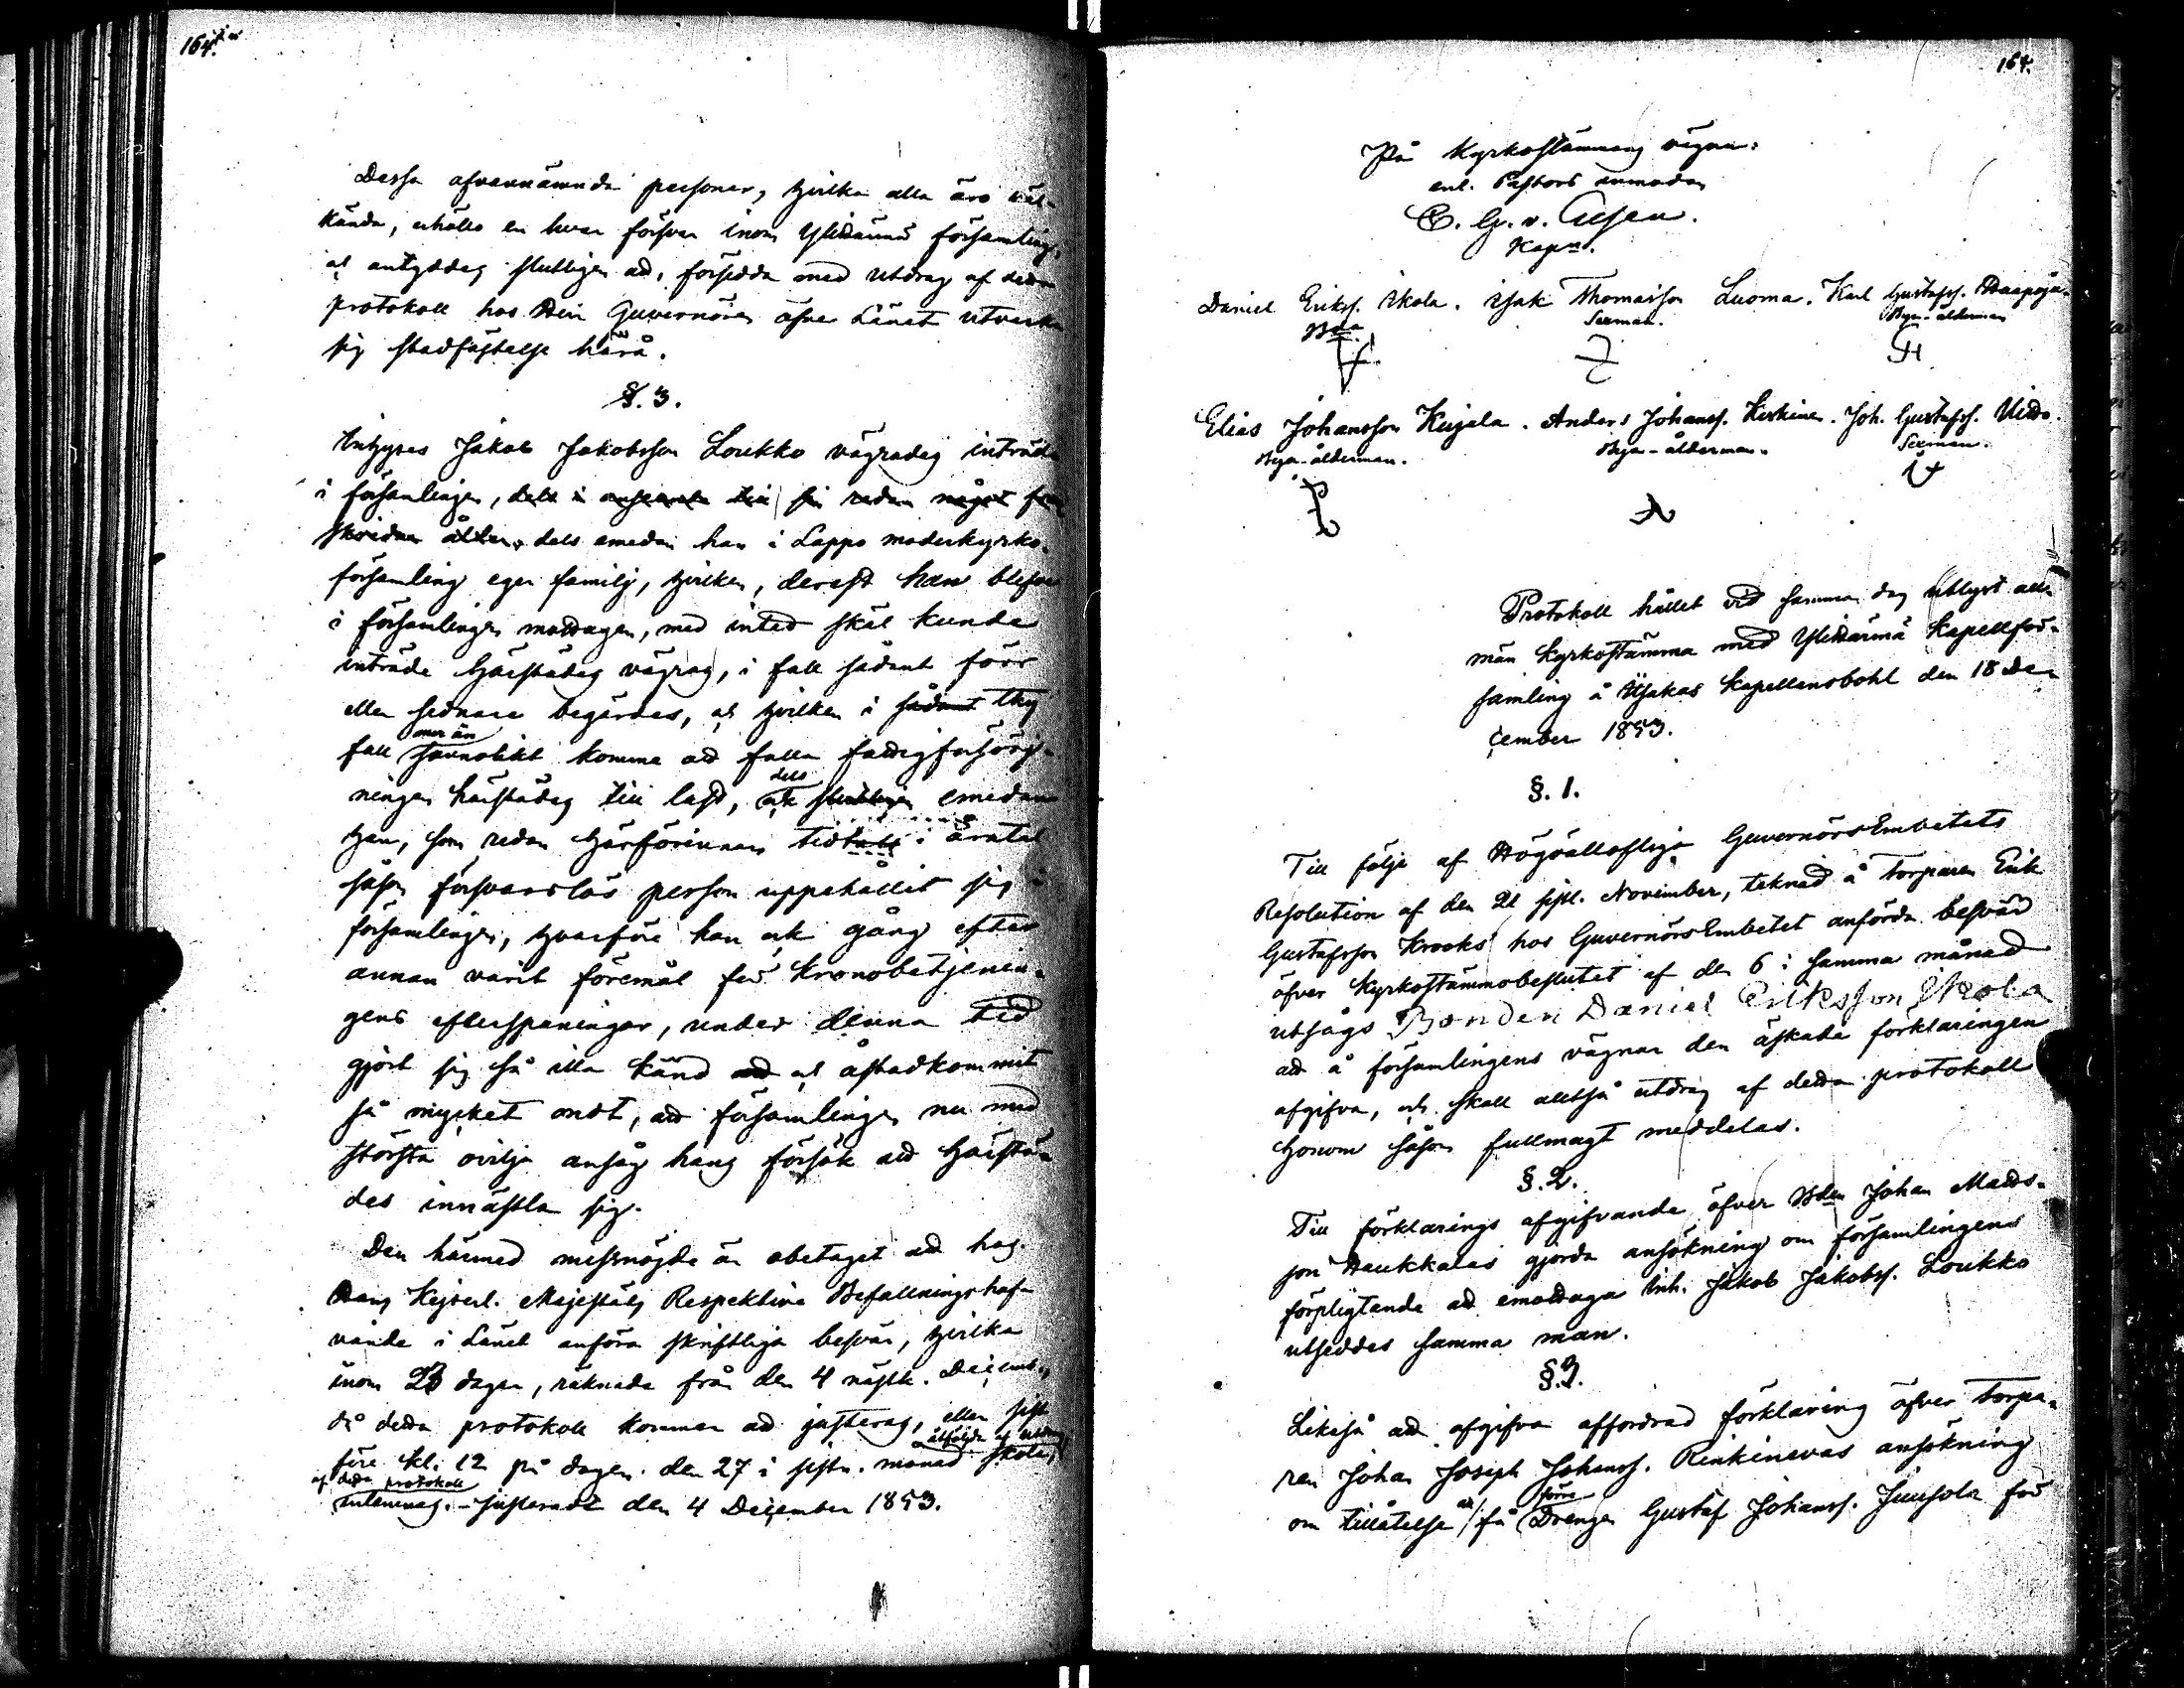 164.
Dessa ofvannämnda personer, hvilka alla äro väl-
kända, erhålla en hvar försvar inom Ylihärmä församling,
at antyddes slutligen att, försedda med utdrag af detta
protokoll hos Herr Guvernören öfver Länet utverka
sig stadfästelse härå.
§. 3.
Inhyses Jakob Jakobsson Loukko vägrades inträde
i församlingen, dels i anseende till sin redan något fram
skridna ålder, dels emedan han i Lappo moderkyrko-
församling eger familj, hvilken, derest han blefve
i församlingen mottagen, med intet skäl kunde
inträde härstädes vägras, i fall sådant förr
eller sednare begärdes, ock hvilken i sådant thy
fall mer än sannolikt komme att falla fattigförsörj-
ningen härstädes till last, ock slutligen dels emedan
han, som redan härförinnan tidtals i åratal
såsom försvarslös person uppehållit sig i
församlingen, hvarföre han ock gång efter
annan varit föremål för Kronobetjenin-
gens efterspaningar, under denna tid
gjort sig så illa känd att ock åstadkommit
så mycket ondt, att församlingen nu med
största ovilja ansåg hans försök att härstä-
des innästla sig.
Den härmed missnögde är obetaget att hos
Hans Kejserl. Majestäts Respektive Befallningshaf-
vande i Länet anföra skriftliga besvär, hvilka
inom 23 dagar, räknade från den 4 nästk. Decemb.,
då detta protokoll kommer att justeras, eller sist
före kl. 12 på dagen den 27 i sistn. månad åtföljda af utdrag skola,
af detta protokoll
inlemnas. - Justeradt den 4 December 1853.
164.
På Kyrkostämmans vägnar:
enl. Pastors anmodan
Kapn.
Daniel Erikss. Ikola. Isak Thomasson Luoma. Karl Gustafss. Haapoja.
Bde. Sexman. Byn-ålderman
Elias Johansson Kujala. Anders Johanss. Keskinen. Joh. Gustafss. Uitto.
Byn-ålderman. Byn-ålderman. Sexman.
Protokoll hållet vid samma dag utlyst all-
män Kyrkostämma med Ylihärmä Kapellför-
samling å Isakas Kapellansbohl den 18 De-
cember 1853.
§. 1.
Till följe af Högvällofliga GuvernörsEmbetets
Resolution af den 21 sistl. November, teknad å Torparen Erik
Gustafsson Krooks hos GuvernörsEmbetet anförda besvär
öfver Kyrkostämmobeslutet af den 6 i samma månad
utsågs Bonden Daniel Eriksson Ikola
att å församlingens vägnar den äskade förklaringen
afgifva, och skall alltså utdrag af detta protokoll
honom såsom fullmagt meddelas.
§. 2.
Till förklarings afgifvande öfver Bden Johan Matts-
son Haukkalas gjorda ansökning om församlingens
förpligtande att emottaga Inh. Jakob Jakobss. Loukko
utseddes samma man.
§. 3.
Likaså att afgifva affordrad förklaring öfver Torpa-
ren Johan Joseph Johanss. Rinkinevas ansökning
om tillåtelse att få förra Drengen Gustaf Johanss. Juusola för